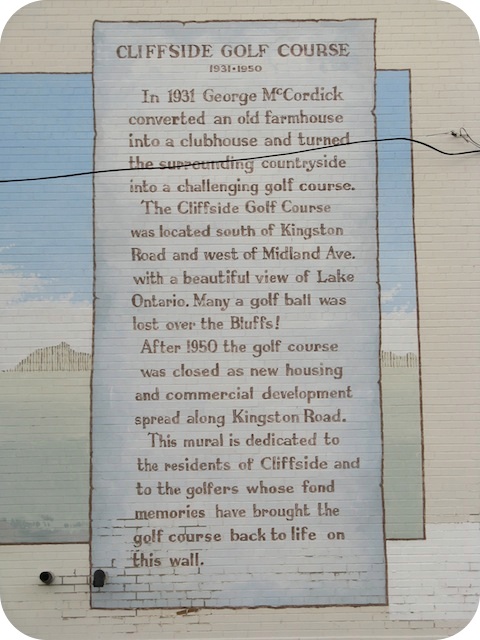 CLIFFSIDE GOLF COURSE
1931•1950
In 1931 George McCordick
converted an old farmhouse
into a clubhouse and turned
the surrounding countryside
into a challenging golf course.
The Cliffside Golf Course
was located south of Kingston
Road and west of Midland Ave.
with a beautiful view of Lake
Ontario. Many a golf ball was
lost over the Bluffs!
After 1950 the golf course
was closed as new housing
and commercial development
spread along Kingston Road.
This mural is dedicated to
the residents of Cliffside and
to the golfers whose fond
memories have brought the
golf course back to life on
this wall.